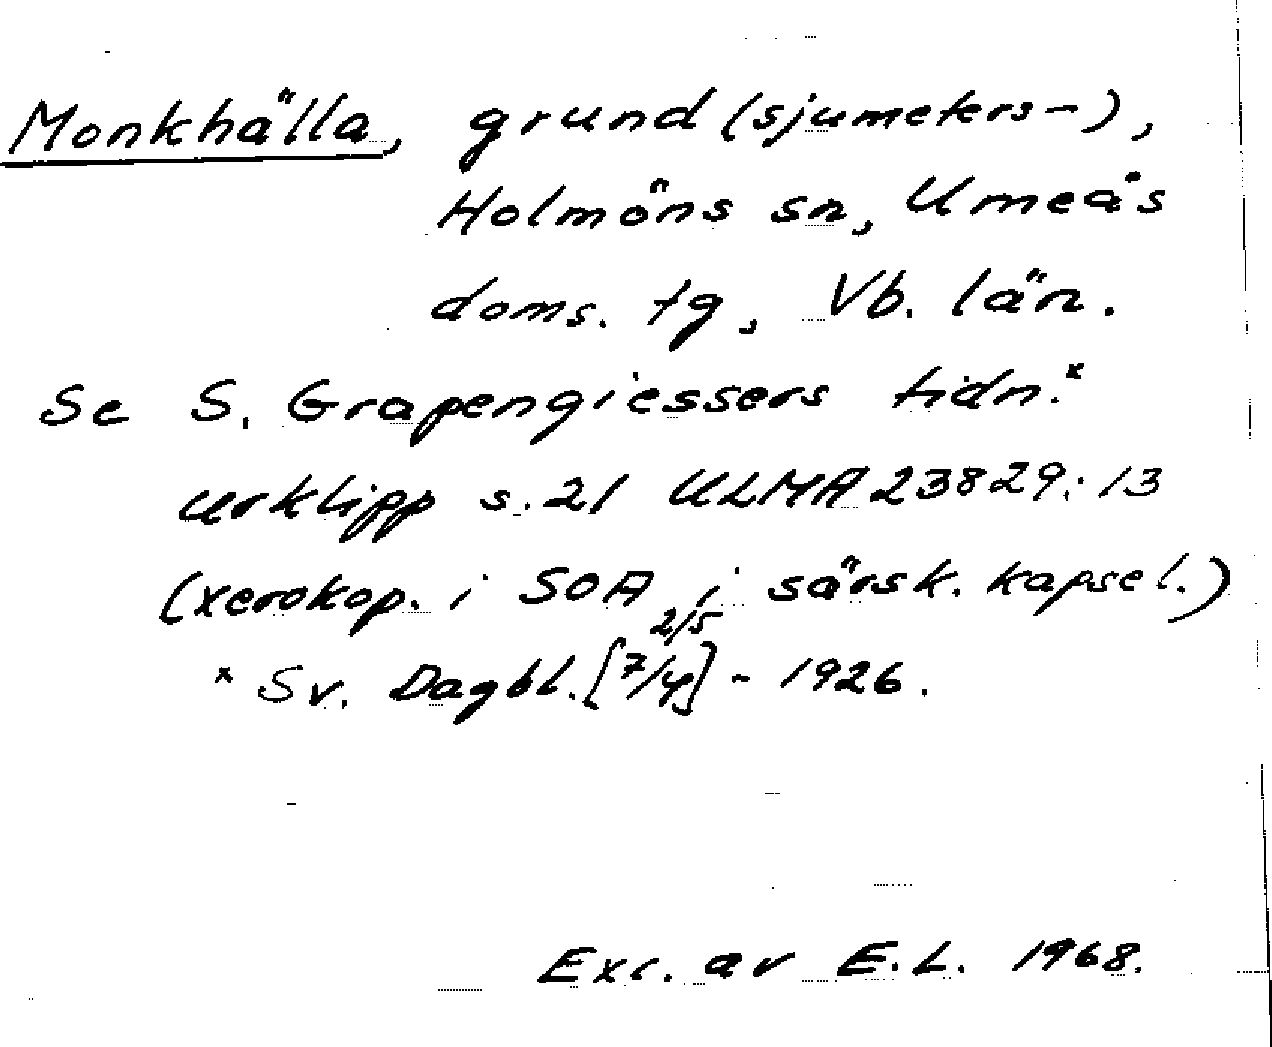 Monkhälla, grund (sjumeters-),
Holmöns sn, Umeås
doms. tg, Vb. län.
Se S. Grapengiessers tidn.*
urklipp s. 21 ULMA 23829:13
(xerokop. i SOA i särsk. kapsel.)
2/5
* Sv. Dagbl. [7/4] - 1926.
Exc. av E.L. 1968.